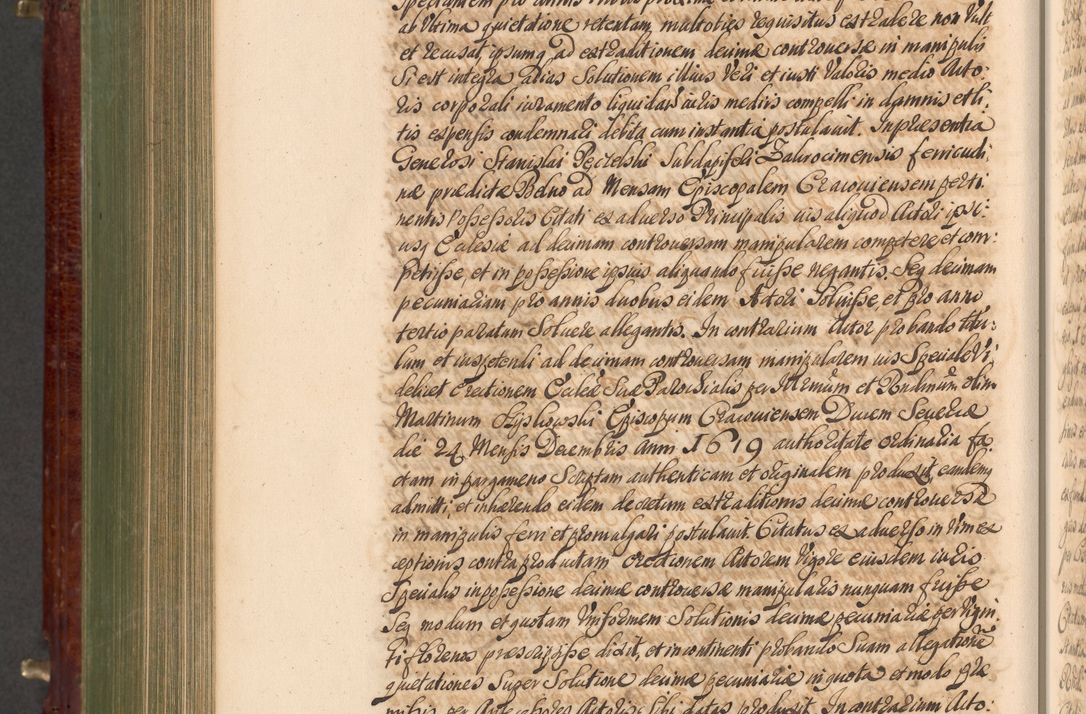 ab Ultima quietatione retentam multoties requisitus extradere non Vult
et recusat, ipsumq ad extraditionem decimæ controversæ in manipulis
Si est integra alias Solutionem illius Veri et iusti Valoris medio Acto:
ris corporali iuramento liquidari iuris mediis compelli in damnis et li:
tis expensis condemnari debita cum instantia postulavit. In præsentia
Generosi Stanislai Subdapiferi Zakrocimensis ferricudi:
næ prædictæ ad Mensam Episcopalem Cracoviensem perti:
nentis Possessoris Citati ex adverso Principalis ius aliquod Actori ipsi:
usq Ecclesiæ ad decimam controversam manipularem competere et com:
petiisse, et in possessione ipsius aliquando fuisse negantis, Seq decimam
pecuniariam pro annis duobus eidem Actori Solvisse, et pro anno
tertio paratum Solvere allegantis. In contrarium Actor probando titu:
lum et ius petendi ad decimam controversam manipularem ius Speciale Vi:
delicet Erectionem Ecclæ Suæ Parochialis per Illrmum et Rndmum olim
Martinum Szyszkowski Episcopum Cracoviensem Ducem Severiæ
die 24 Mensis Decembris Anni 1619 authoritate ordinaria fa
ctam in pargameno Scriptam authenticam et originalem produxit, eandemq
admitti, et inhærendo eidem decretum extraditionis decimæ controversæ
in manipulis ferri et promulgari postulavit. Citatus ex adverso in Vim ex
ceptionis contra productam erectionem Actorem Vigore eiusdem iuris
Specialis in possessione decimæ controversæ manipularis nunquam fuisse
Seq modum et quotam Uniformem Solutionis decimæ pecuniariæ per Vigin
ti florenos præscripsisse dixit, et in continenti probando Suam allegationē
quietationes Super Solutione decimæ pecuniariæ in quota et modo præ
missis per Antecessores Actoris Sibi datas produxit. In contrarium Acto: